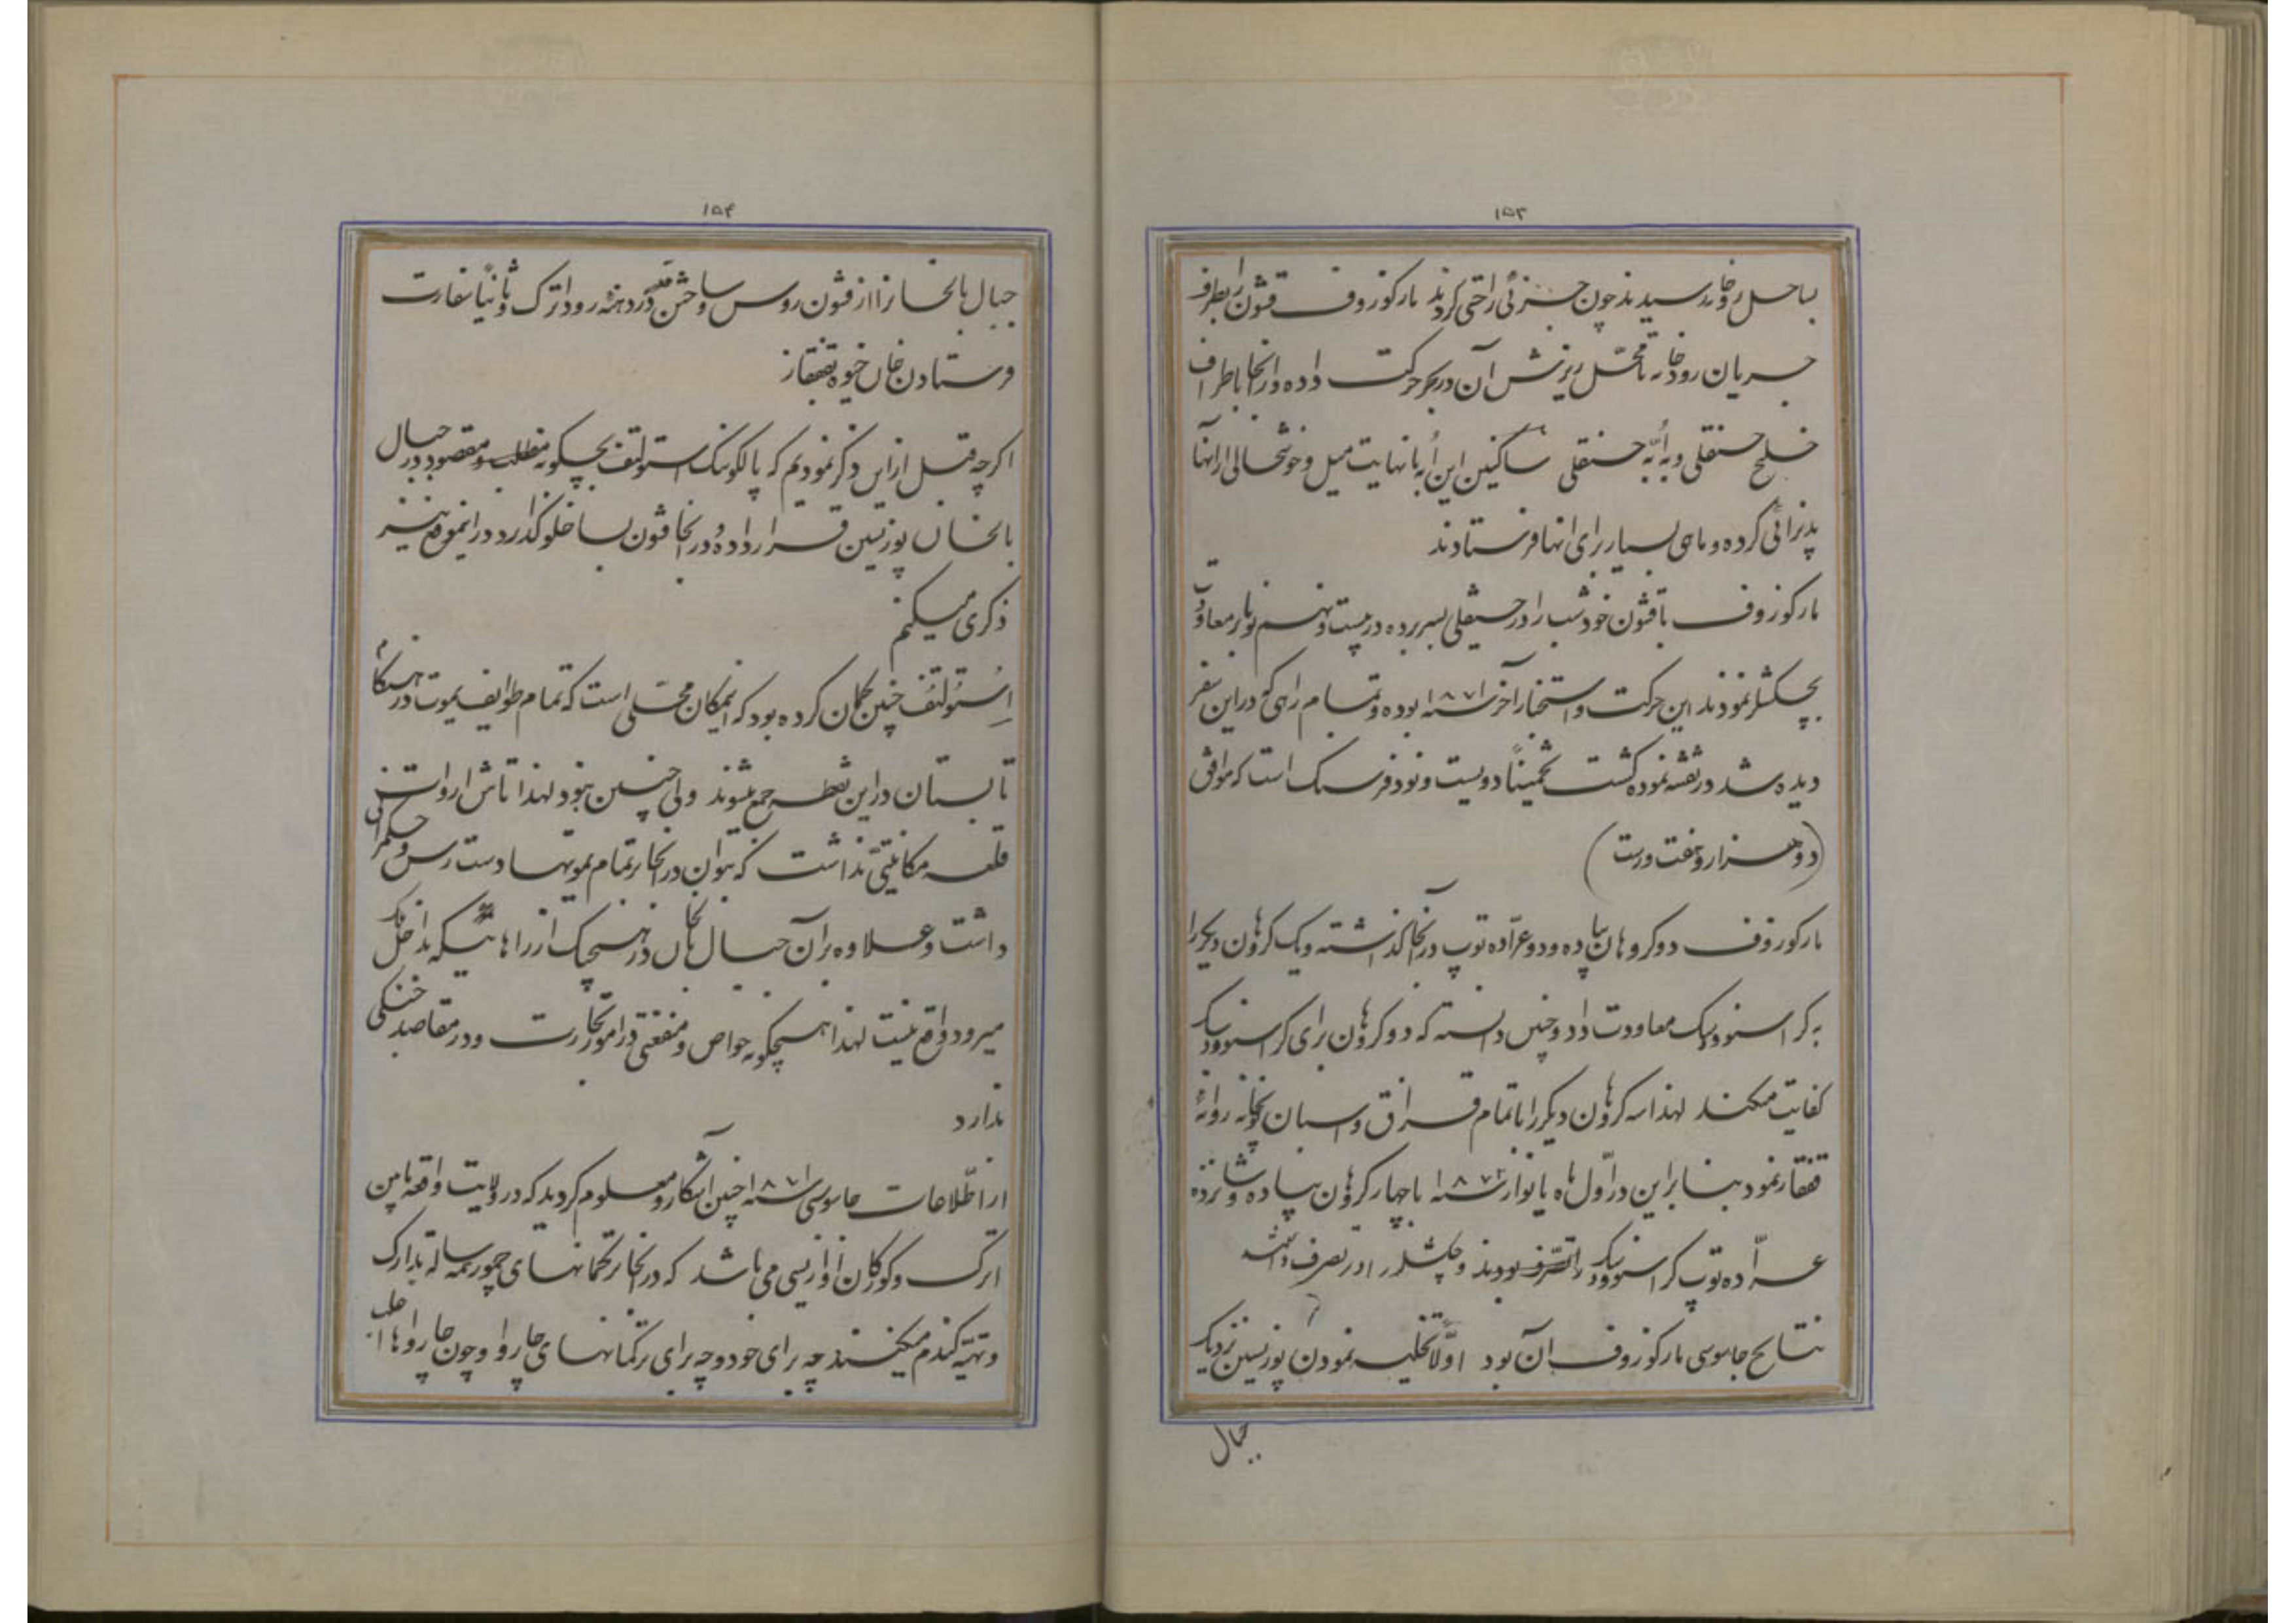 ۱۵۳
بساحل رودخانه رسیدند چون جزئی راحتی کردند مارکوزوف قشون را بطرف
جریان رودخانه تا محل ریزش آن در بحر حرکت داده و از آنجا باطراف
خلیج حسنقلی و به اُبّه حسنقلی ساکنین این اُبه با نهایت میل و خوشحالی از آنها
پذیرائی کرده و ماهی بسیار برای انها فرستادند
مارکوزوف با قشون خود شب را در حسنقلی بسر برده در بیست و نهم نویابر معاودت
بچکشلر نمودند این حرکت و استخبار آخر سنه ۱۸۷۱ بوده و تمام راهی که در این سفر
دیده شد در نقشه نموده گشت تخمیناً دویست و نود فرسنگ است که موافق
(دو هزار و هفت ورست)
مارکوزوف دو کروهان پیاده و دو عرّاده توپ در آنجا گذاشته و یک کرهان دیگر را
به کراسنوودیک معاودت داد و چنین دانسته که دو کروهان برای کراسنوودیک
کفایت میکند لهذا سه کروهان دیگر را با تمام قزاق و اسبان توپخانه روانهٔ
قفقاز نمود بنا براین در اوّل ماه یانوار سنه ۱۸۷۲ با چهار کروهان پیاده و شانزده
عرّاده توپ کراسنوودیک را تصرف بودند و چکشلر را در تصرف داشتند
نتایج جاسوسی مارکوزوف ان بود اوّلاً تخلیه نمودن پوزیسین نزدیک
جبال
۱۵۴
جبال بالخان را از قشون روس و ساختن قلعه در دهنه رود اترک و ثانیاً سفارت
فرستادن خان خیوه بقفقاز
اکرچه قبل از این ذکر نمودیم که پالکونیک استولتف بچکونه مطلب و مقصود در جبال
بالخان پوزیسین قرار داده و در انجا قشون بساخلو گذارد در اینموقع نیز
ذکری میکنم
اِستُولتُف چنین گمان کرده بود که اینمکان محلّی است که تمام طوایف یموت در هنگام
تابستان در این نقطه جمع میشوند ولی چنین نبود لهذا تاش ارواتنین
قلعه مکانیتی نداشت که بتوان در انجا بر تمام یموتها دست رس و حکمرانی
داشت و علاوه بر آن جبال بالخان در هیچیک از راه هائیکه بداخله
میرود واقع نیست لهذا هیچگونه خواص و منفعتی در امور تجارت و در مقاصد جنگی
ندارد
از اطّلاعات جاسوسی سنه ۱۸۷۱ چنین آشکار و معلوم گردید که در ولایت واقعه مابین
اترک و کورکان اوازیسی می باشد که در انجا ترکمانهای چمور همه ساله تدارک
و تهیّه گندم میکنند چه برای خود و چه برای ترکمانهای چاروا و چون چارواها اغلب